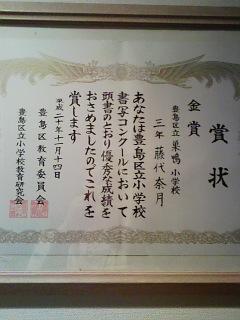 賞状
金賞
豊島区立 巣鴨 小学校
三年 藤代奈月
あなたは豊島区立小学校
書写コンクールにおいて
頭書のとおり優秀な成績を
おさめましたのでこれを
賞します
平成二十年十一月十四日
豊島区教育委員会
豊島区立小学校教育研究会